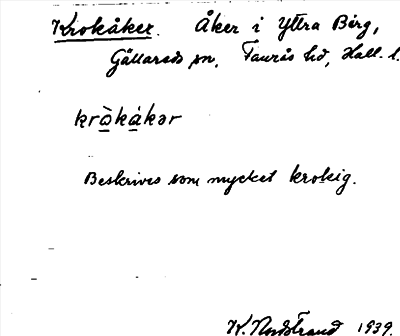 Krokåker. Åker i Yttra Berg,
Gällareds sn, Faurås hd, Hall. l.
krɷ̀kákər
Beskrives som mycket krokig.
K. Nordstrand 1939.